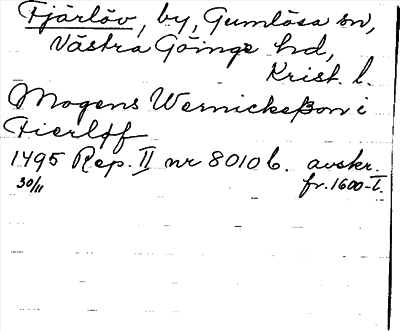 Fjärlöv, by, Gumlösa sn,
Västra Göinge hd,
Krist. l.
Mogens Wernickeßon i
Fierløf
1495 Rep. II nr 8010 b. avskr.
30/11 fr. 1600-t.